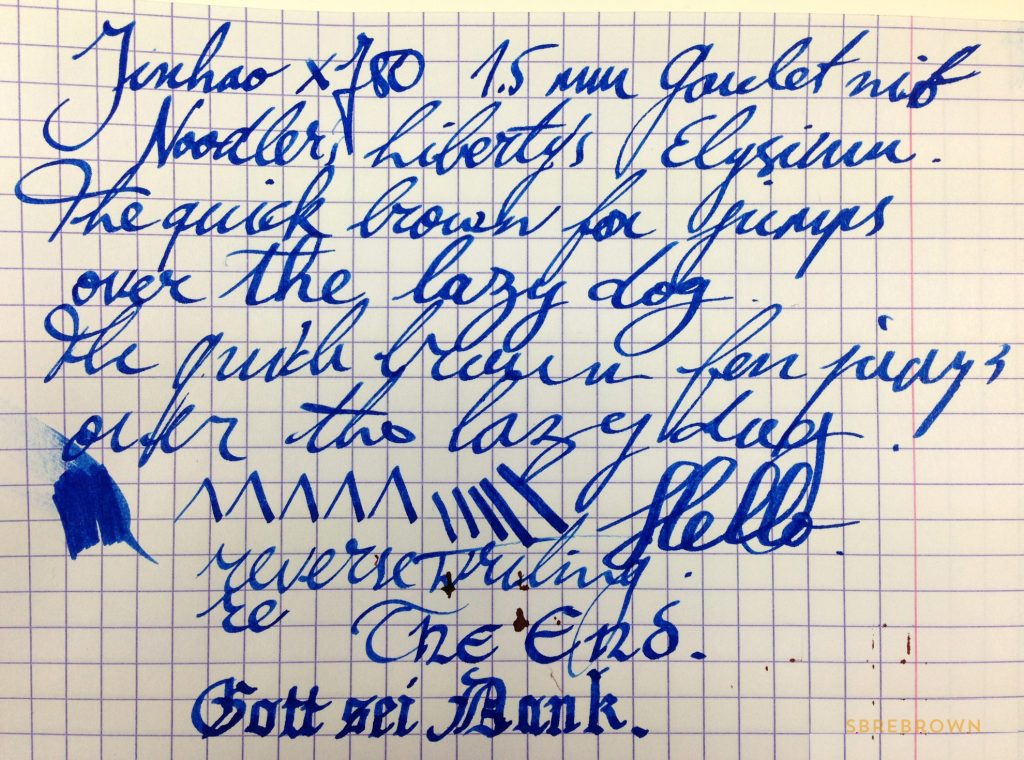 Jinhao x780 1.5 mm Goulet nib
Noodlers Liberty's Elysium.
The quick brown fox jumps
over the lazy dog.
The quick brown fox jumps
over the lazy dog.
Hello
reverse writing.
re
The End.
Gott sei Dank.
SBREBROWN